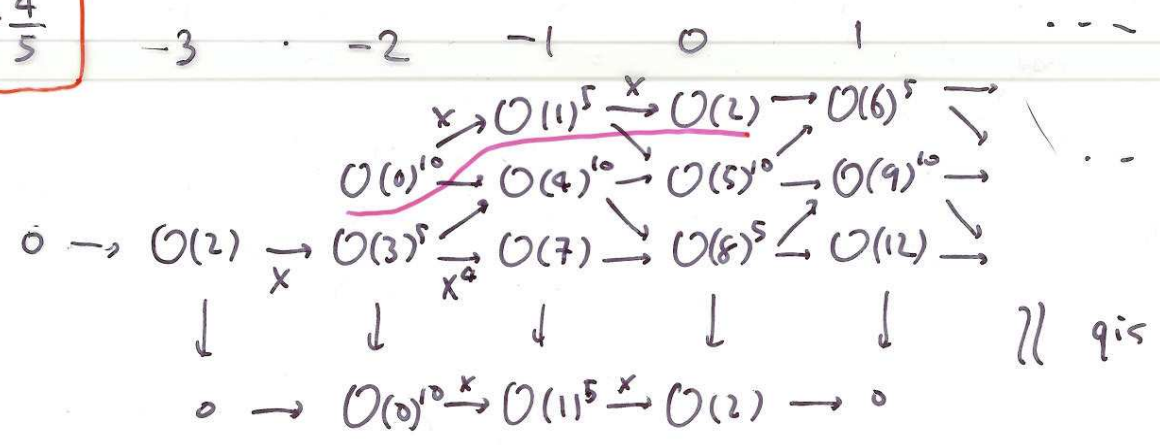 4/5
-3 · -2 -1 0 1 ...
x O(1)⁵ x→ O(2) → O(6)⁵ →
O(0)¹⁰ → O(4)¹⁰ → O(5)¹⁰ → O(9)¹⁰ → ...
0 → O(2) → O(3)⁵ → O(7) → O(8)⁵ → O(12) →
x x⁴
↓ ↓ ↓ ↓ ↓ qis
0 → O(0)¹⁰ x→ O(1)⁵ x→ O(2) → 0